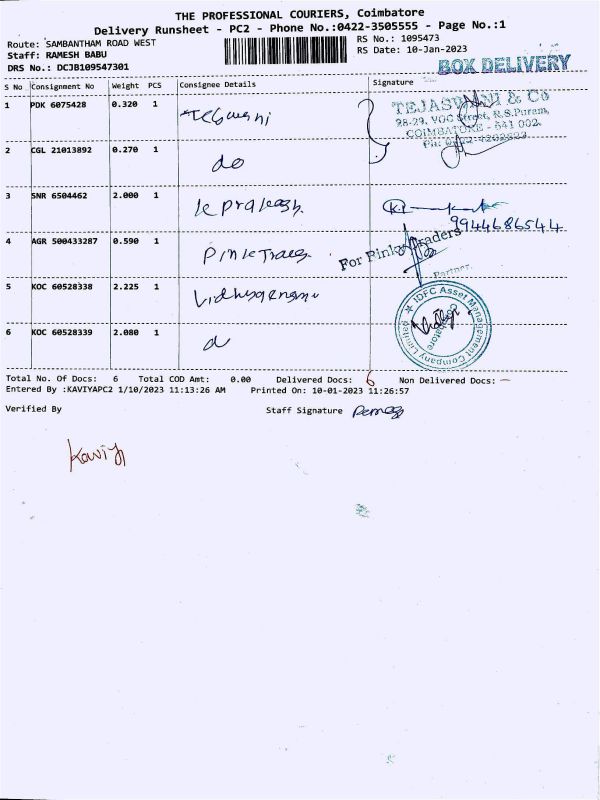 THE PROFESSIONAL COURIERS, Coimbatore
Delivery Runsheet - PC2 - Phone No.:0422-3505555 - Page No.:1
Route: SAMBANTHAM ROAD WEST
RS No.: 1095473
Staff: RAMESH BABU
RS Date: 10-Jan-2023
DRS No.: DCJB109547301
BOX DELIVERY
S No Consignment No Weight PCS Consignee Details Signature
1 PDK 6075428 0.320 1
TEJASWANI & Co
28-29, VOC Street, R.S.Puram,
COIMBATORE - 641 002.
2 CGL 21013892 0.270 1 do
3 SNR 6504462 2.000 1 k prakash
9944686544
4 AGR 500433287 0.590 1
For Pinky Traders
Partner.
5 KOC 60528338 2.225 1
IDFC Asset Management Company Limited
6 KOC 60528339 2.080 1
Total No. Of Docs: 6 Total COD Amt: 0.00 Delivered Docs: 6 Non Delivered Docs: —
Entered By :KAVIYAPC2 1/10/2023 11:13:26 AM Printed On: 10-01-2023 11:26:57
Verified By Staff Signature
Kaviya